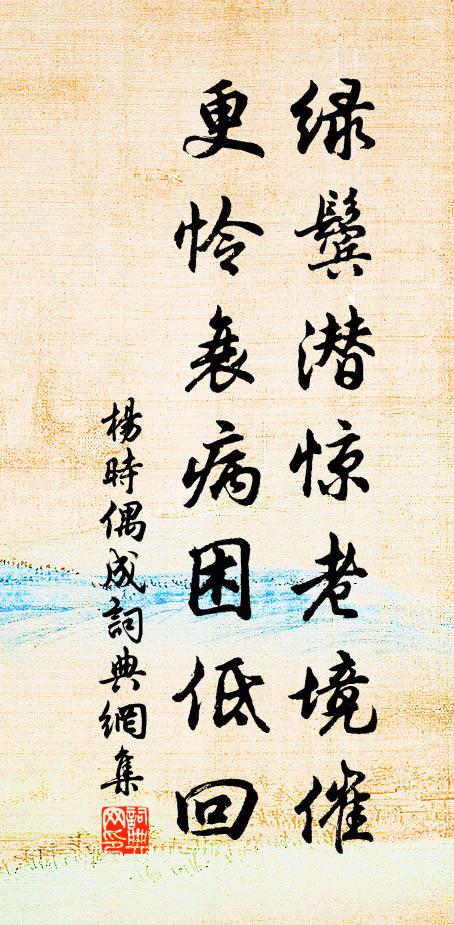 绿鬓潜惊老境催
更怜衰病困低回
楊時偶成詞典網集
詞典网印